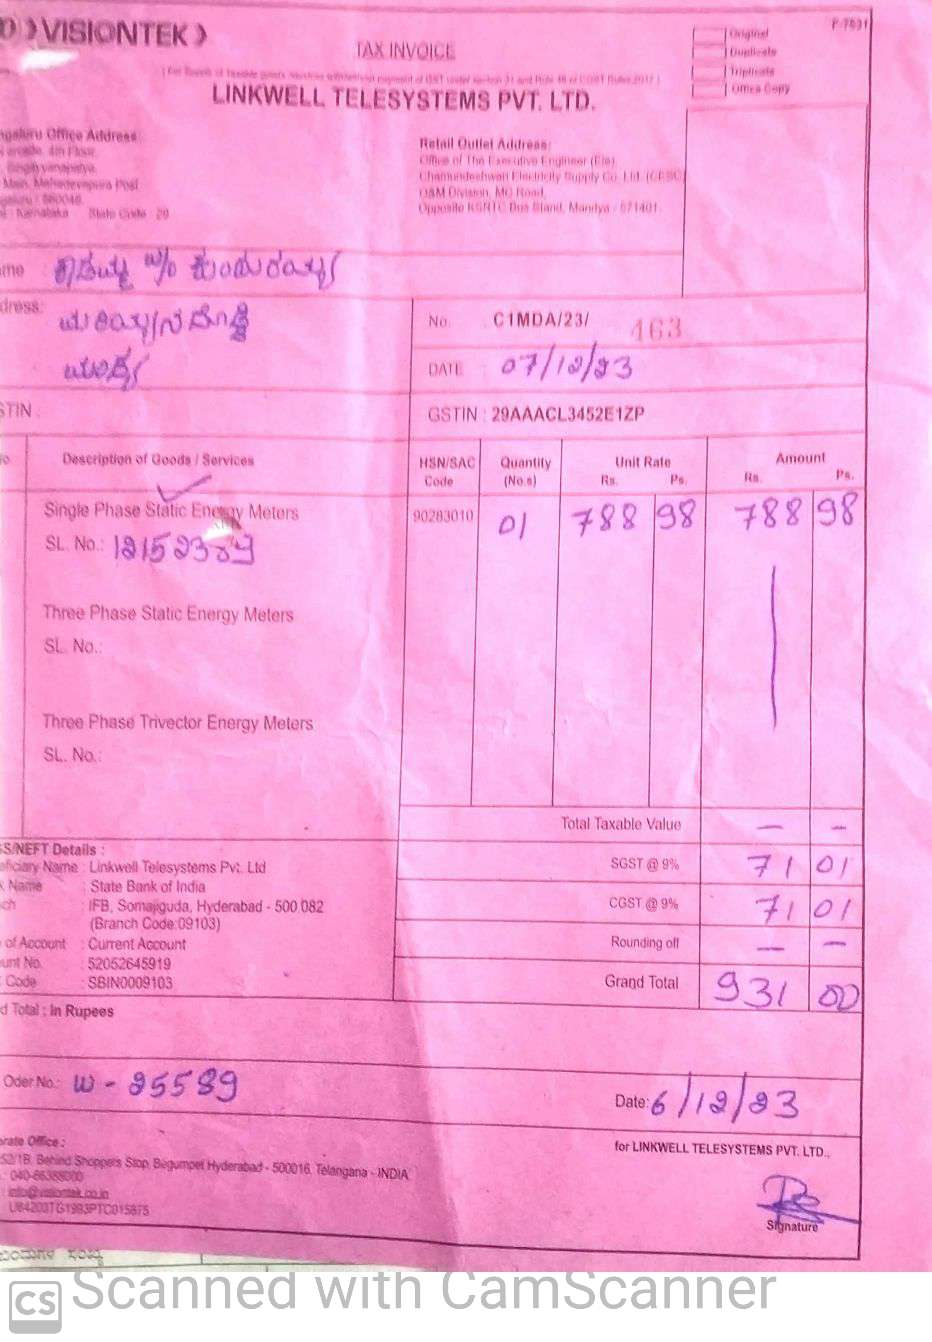 VISIONTEK
P-7631
TAX INVOICE
Original
Duplicate
Triplicate
Office Copy
LINKWELL TELESYSTEMS PVT. LTD.
Office Address:
4th Floor,
Main, Mahadevapura Post
Karnataka State Code : 29
Retail Outlet Address:
Office of The Executive Engineer (Ele),
Chamundeshwari Electricity Supply Co. Ltd. (CESC)
O&M Division, MC Road,
Opposite KSRTC Bus Stand, Mandya - 571401.
No. C1MDA/23/ 463
DATE 07/12/23
GSTIN : 29AAACL3452E1ZP
Description of Goods / Services
HSN/SAC Code
Quantity (No.s)
Unit Rate Rs. Ps.
Amount Rs. Ps.
Single Phase Static Energy Meters 90283010 01 788 98 788 98
SL. No.:
Three Phase Static Energy Meters
SL. No.:
Three Phase Trivector Energy Meters
SL. No.:
Total Taxable Value — —
S/NEFT Details :
Name : Linkwell Telesystems Pvt. Ltd
SGST @ 9% 71 01
Name : State Bank of India
: IFB, Somajiguda, Hyderabad - 500 082
CGST @ 9% 71 01
(Branch Code:09103)
of Account : Current Account
Rounding off — —
No. : 52052645919
Code : SBIN0009103
Grand Total 931 00
Total : In Rupees
Oder No.: W - 25589
Date: 6/12/23
for LINKWELL TELESYSTEMS PVT. LTD.,
Office :
Behind Shoppers Stop, Begumpet Hyderabad - 500016. Telangana - INDIA
040-66388000
info@visiontek.co.in
Signature
CS Scanned with CamScanner